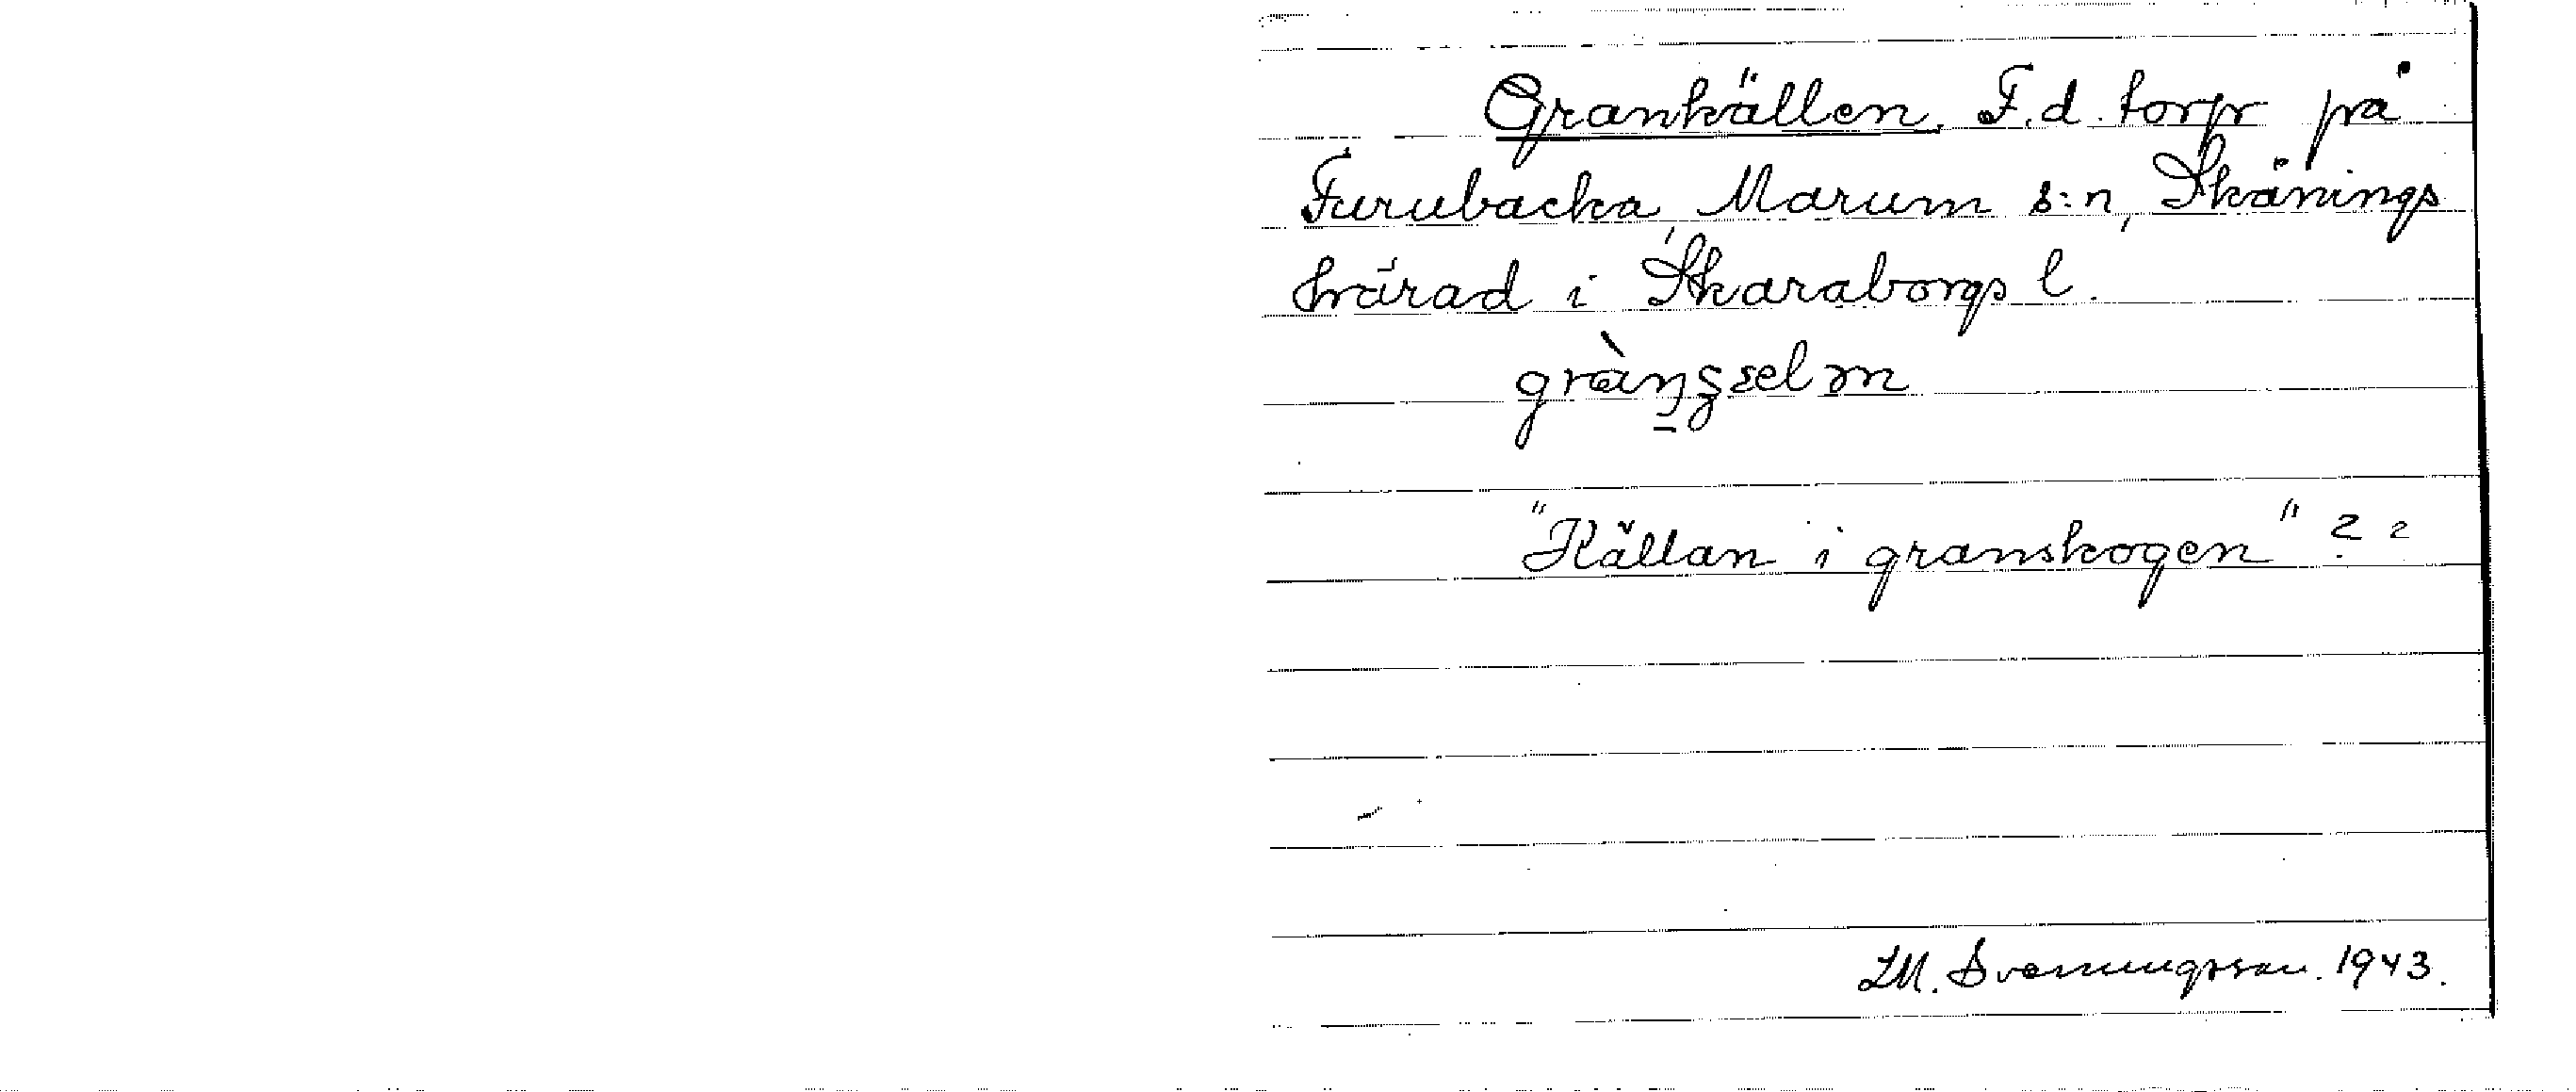 Grankällen. F.d. torp på
Furubacka, Marum s:n, Skånings
härad i Skaraborgs l.
"Källan i granskogen" ? ?
LM. Svenungsson. 1943.